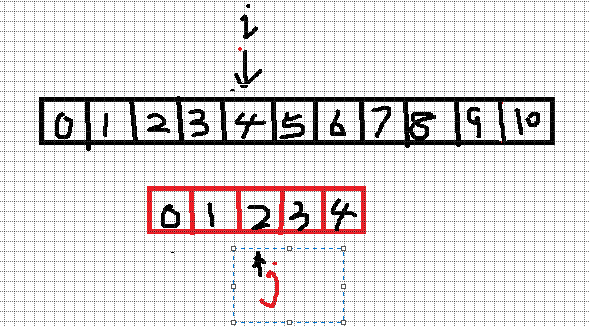 i
0 1 2 3 4 5 6 7 8 9 10
0 1 2 3 4
j